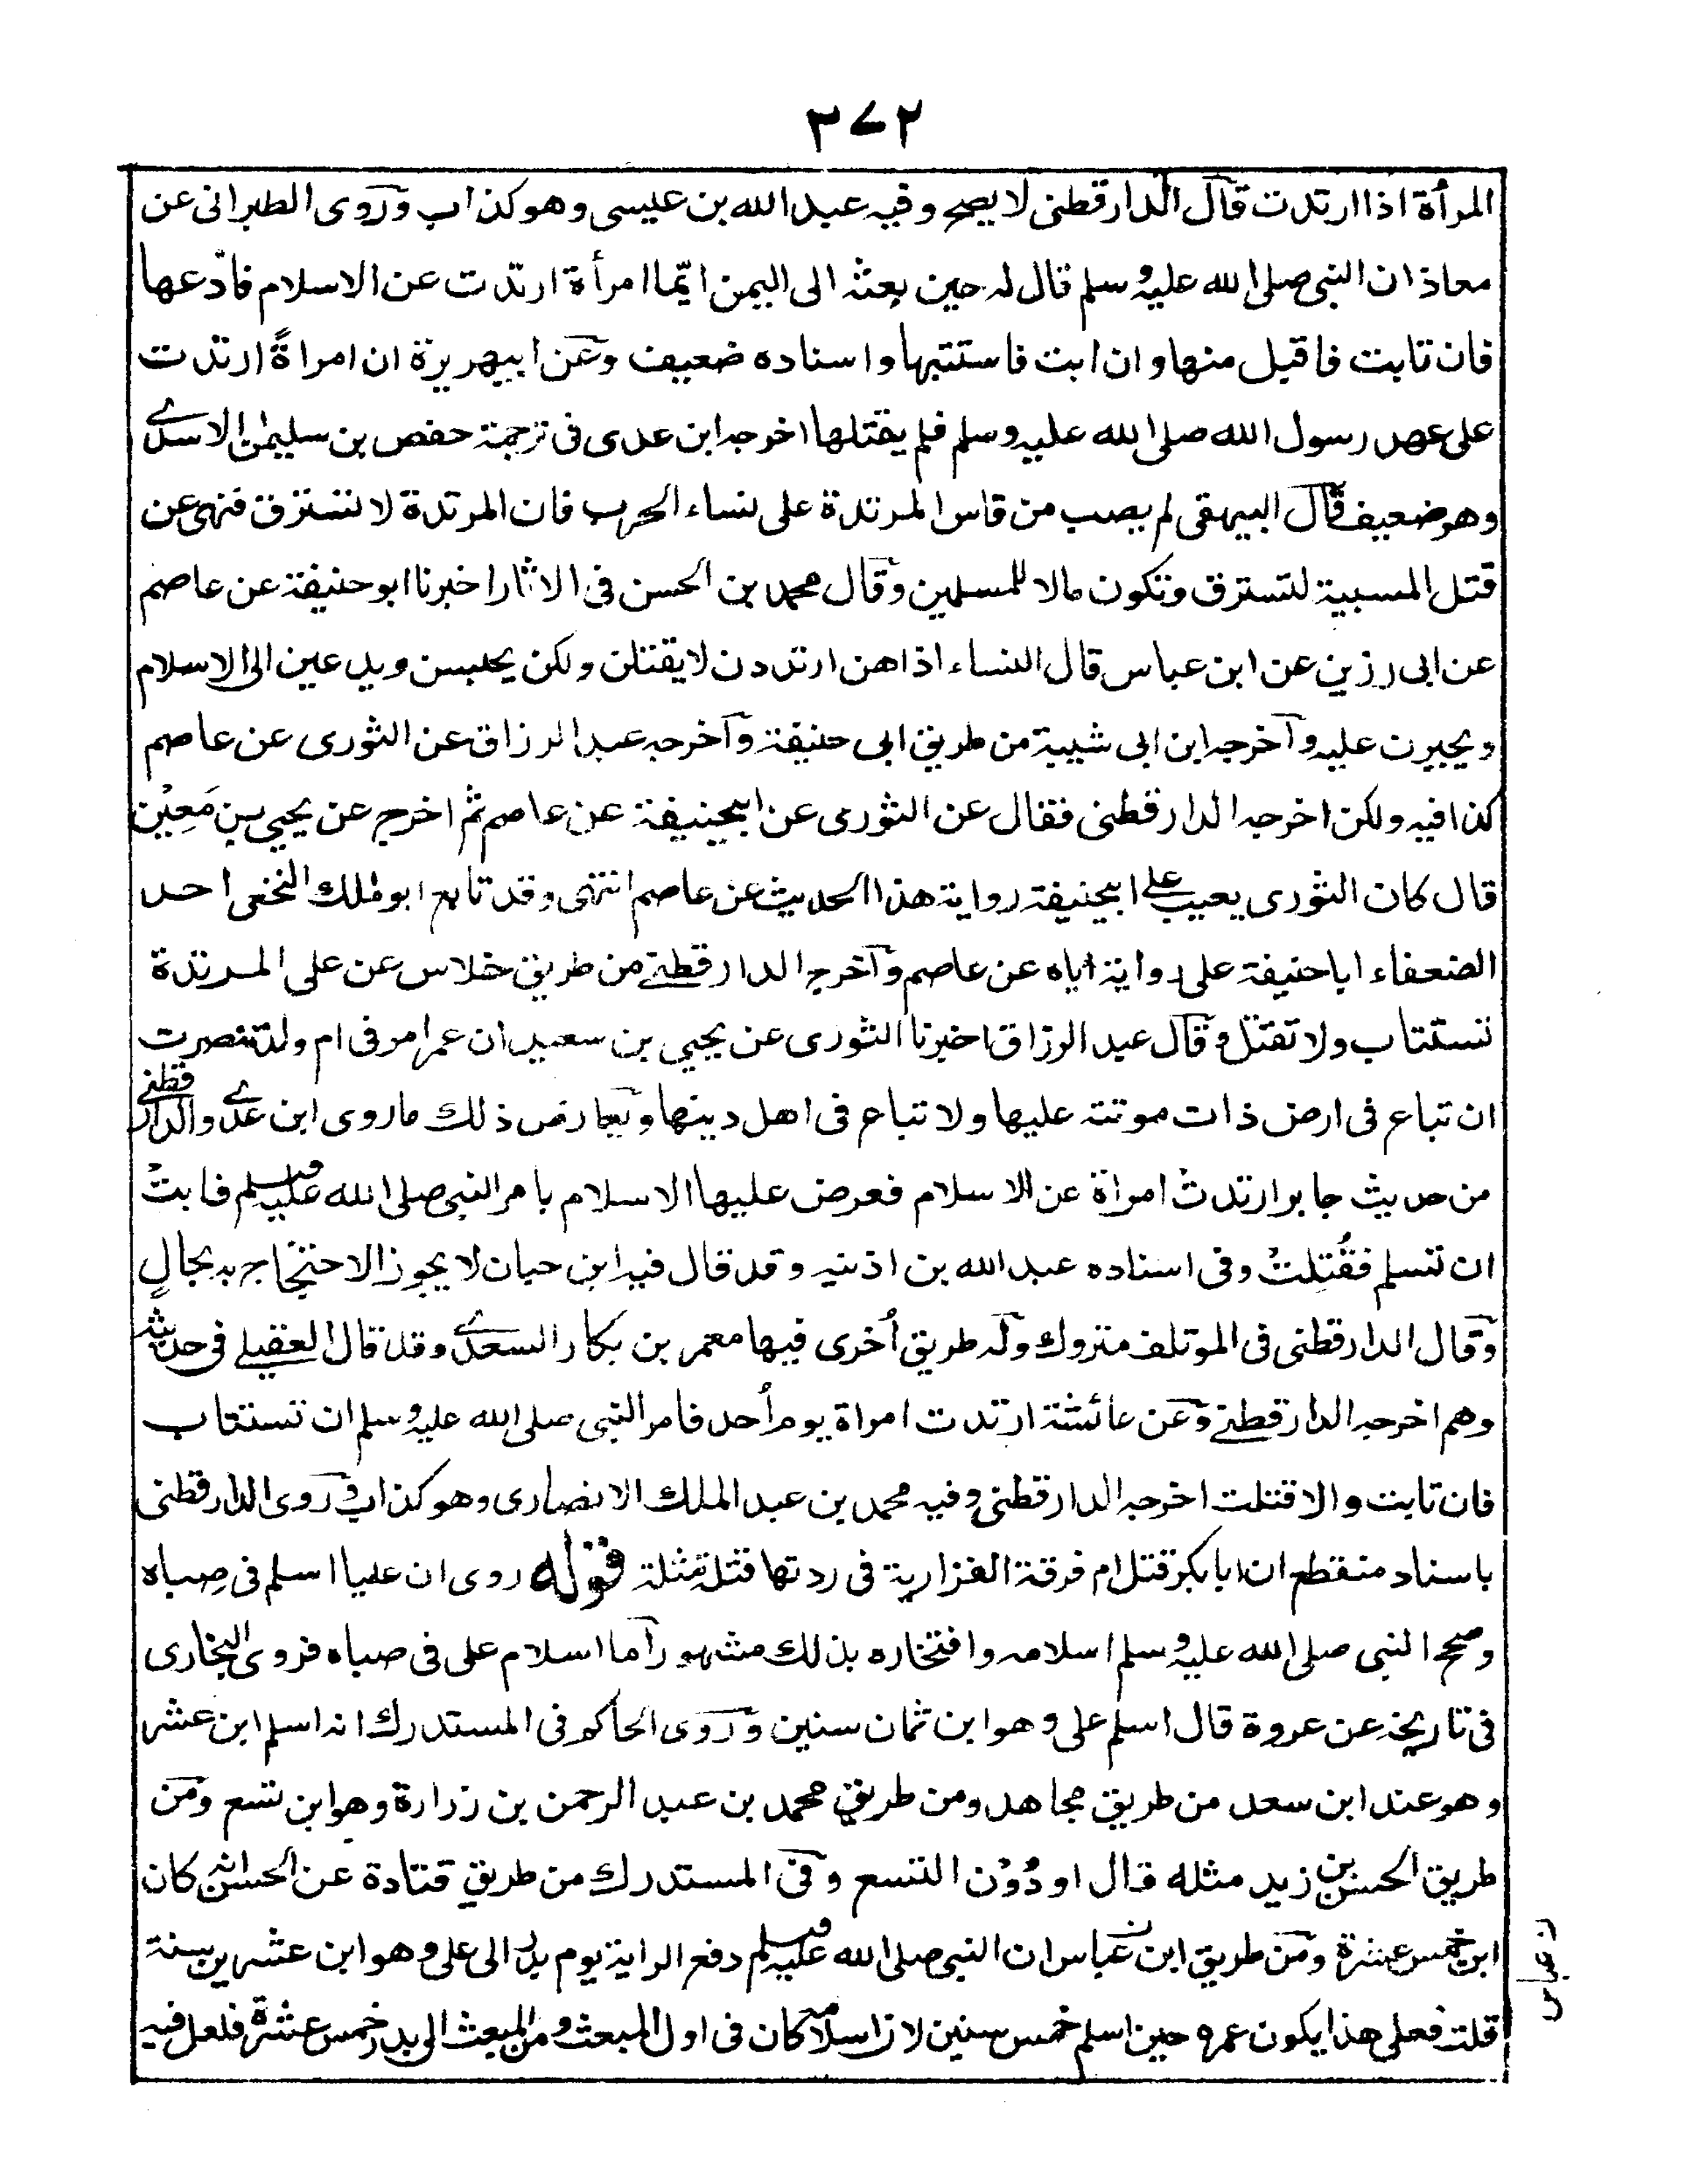 ٣٧٢
المرأة اذا ارتدت قال الدارقطنى لا يصح وفيه عبد الله بن عيسى وهو كذاب وروى الطبرانى عن
معاذ ان النبى صلى الله عليه وسلم قال له حين بعثه الى اليمن ايّما امرأة ارتدت عن الاسلام فادعها
فان تابت فاقبل منها وان ابت فاستتبها واسناده ضعيف وعن ابيهريرة ان امراةً ارتدت
على عهد رسول الله صلى الله عليه وسلم فلم يقتلها اخرجه ابن عدى فى ترجمة حفص بن سليمٰن الاسدى
وهو ضعيف قال البيهقى لم يصب من قاس المرتدة على نساء الحرب فان المرتدة لا تسترق فنهى عن
قتل المسبية لتسترق وتكون مالا للمسلمين وقال محمد بن الحسن فى الاثار اخبرنا ابو حنيفة عن عاصم
عن ابى رزين عن ابن عباس قال النساء اذا هن ارتددن لا يقتلن ولكن يحبسن ويدعين الى الاسلام
ويجبرن عليه واخرجه ابن ابى شيبة من طريق ابى حنيفة واخرجه عبد الرزاق عن الثورى عن عاصم
كذا فيه ولكن اخرجه الدارقطنى فقال عن الثورى عن ابيحنيفة عن عاصم ثم اخرج عن يحيى بن مَعِيْن
قال كان الثورى يعيب على ابيحنيفة رواية هذا الحديث عن عاصم انتهى وقد تابع ابو مٰلك النخعى احد
الضعفاء ابا حنيفة على رواية اياه عن عاصم واخرج الدارقطنى من طريق خلاس عن على المرتدة
تستتاب ولا تقتل وقال عبد الرزاق اخبرنا الثورى عن يحيى بن سعيد ان عمر امر فى ام ولد تنصرت
ان تباع فى ارض ذات موتته عليها ولا تباع فى اهل دينها ويعارض ذلك ما روى ابن عدى والدارقطنى
من حديث جابر ارتدت امراة عن الاسلام فعرض عليها الاسلام بامر النبى صلى الله عليه وسلم فابتْ
ان تسلم فقُتِلتْ وفى اسناده عبد الله بن اذنيه وقد قال فيه ابن حبان لا يجوز الاحتجاج به بحالٍ
وقال الدارقطنى فى الموتلف متروك وله طريق اُخرى فيها معمر بن بكار السعدى وقد قال العقيلى فى حديثه
وهم اخرجه الدارقطنى وعن عائشة ارتدت امراة يوم اُحد فامر النبى صلى الله عليه وسلم ان تستتاب
فان تابت والا قتلت اخرجه الدارقطنى وفيه محمد بن عبد الملك الانصارى وهو كذاب وروى الدارقطنى
باسناد منقطع ان ابا بكر قتل ام فرقة الفزارية فى ردتها قتلة مثلة قوله روى ان عليا اسلم فى صِباه
وصحح النبى صلى الله عليه وسلم اسلامه وافتخاره بذلك مشهور اما اسلام على فى صباه فروى البخارى
فى تاريخه عن عروة قال اسلم على وهو ابن ثمان سنين وروى الحاكم فى المستدرك انه اسلم ابن عشر
وهو عند ابن سعد من طريق مجاهد ومن طريق محمد بن عبد الرحمن بن زرارة وهو ابن تسع ومن
طريق الحسن بن زيد مثله قال او دُوْن التسع وفى المستدرك من طريق قتادة عن الحسن انه كان
ابن خمس عشرة ومن طريق ابن عباس ان النبى صلى الله عليه وسلم دفع الراية يوم بدر الى على وهو ابن عشرين سنة
قلت فعلى هذا يكون عمره حين اسلم خمس سنين لان اسلامه كان فى اول المبعث ومن المبعث الى بدر خمس عشرة فلعل فيه
ن عباس